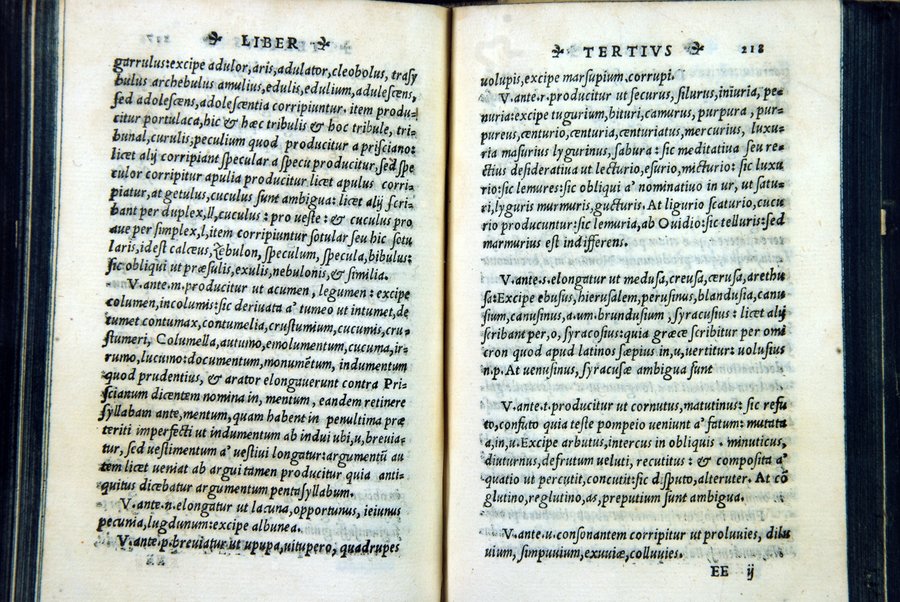 LIBER
garrulus:excipe adulor,aris,adulator,cleobolus, trasy
bulus archebulus amulius,edulis,edulium,adulescens,
sed adolescens,adolescentia corripiuntur. item produ-
citur portulaca,hic & hæc tribulis & hoc tribule, tri-
bunal,curulis;peculium quod producitur a prisciano:
licet alij corripiant specular a specu producitur,sed spe
culor corripitur apulia producitur licet apulus corri-
piatur,at getulus,cuculus sunt ambigua: licet alij scri-
bant per duplex,ll,cuculus: pro ueste: & cuculus pro
aue per simplex,l,item corripiuntur sotular seu hic sotu
laris,idest calceus,Zebulon, speculum, specula,bibulus:
sic obliqui ut præsulis,exulis,nebulonis,& similia.
V.ante.m.producitur ut acumen, legumen: excipe
columen,incolumis:sic deriuata a' tumeo ut intumet,de
tumet contumax,contumelia,crustumium,cucumis,cru-
stumeri, Columella,autumo,emolumentum,cucuma,ir-
rumo,lucumo:documentum,monumētum, indumentum
quod prudentius, & arator elongauerunt contra Pri-
scianum dicentem nomina in, mentum, eandem retinere
syllabam ante,mentum,quam habent in penultima præ
teriti imperfecti ut indumentum ab indui ubi,u,breuia-
tur, sed uestimentum a' uestiui longatur:argumentū au
tem licet ueniat ab argui tamen producitur quia anti-
quitus dicebatur argumentum pentasyllabum.
V.ante.n.elongatur ut lacuna,opportunus, ieiunus
pecunia,lugdunum:excipe albunea.
V.ante.p.breuiatur ut upupa,uitupero, quadrupes
TERTIVS 218
uolupis,excipe marsupium,corrupi.
V.ante.r.producitur ut securus, silurus,iniuria, pe-
nuria:excipe tugurium,bituri,camurus, purpura , pur-
pureus,centurio,centuria,centuriatus,mercurius, luxu-
ria masurius lygurinus, sabura: sic meditatiua seu re-
ctius desideratiua ut lecturio,esurio,micturio: sic luxu
rio:sic lemures:sic obliqui a' nominatiuo in ur, ut satu-
ri,lyguris murmuris,gucturis. At ligurio scaturio,cucu
rio producuntur:sic lemuria,ab Ouidio:sic telluris:sed
marmurius est indifferens.
V.ante.s.elongatur ut medusa,creusa,cærusa,arethu
sa:Excipe ebusus,hierusalem,perusinus,blandusia,canu
sium,canusinus,a.um.brundusium , syracusius: licet alij
scribant per,o, syracosius:quia græce scribitur per omi
cron quod apud latinos sæpius in,u,uertitur: uolusius
n.p. At uenusinus, syracusæ ambigua sunt
V.ante.t.producitur ut cornutus,matutinus: sic refu
to,confuto quia teste pompeio ueniunt a' fatum: mutata
a,in,u.Excipe arbutus,intercus in obliquis . minuticus,
diuturnus,defrutum ueluti, recutitus: & composita a'
quatio ut percutit,concutit:sic disputo,alteruter. At cō
glutino,reglutino,as,preputium sunt ambigua.
V.ante.u.consonantem corripitur ut proluuies, dilu
uium, simpuuium,exuuiæ,colluuies.
EE ij